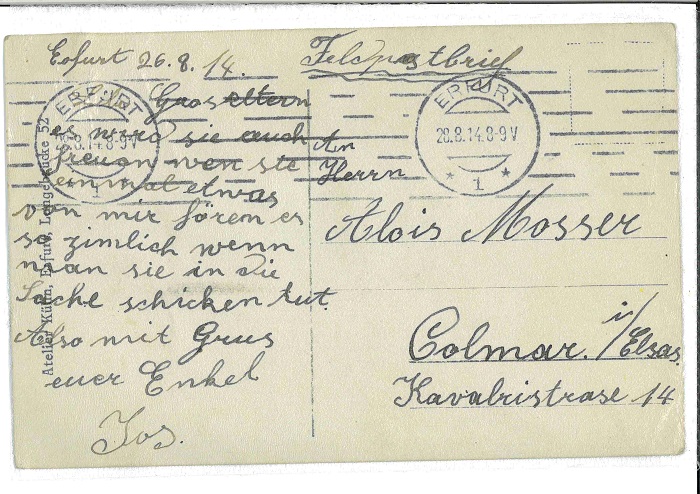 Erfurt 26.8.14.
Feldpostbrief
Grosseltern
es wird sie auch
freuen wen sie
einmal etwas
von mir hören es
so zimlich wenn
man sie in die
Sache schicken tut.
Also mit Grus
euer Enkel
Jos.
An
Herrn
Alois Mosser
Colmar. i/Elsas.
Kavalristrase 14
ERFURT
28.8.14.8-9V
* 1 *
ERFURT
28.8.14.8-9V
1
Atelier Kühn, Erfurt, Langebrücke 52